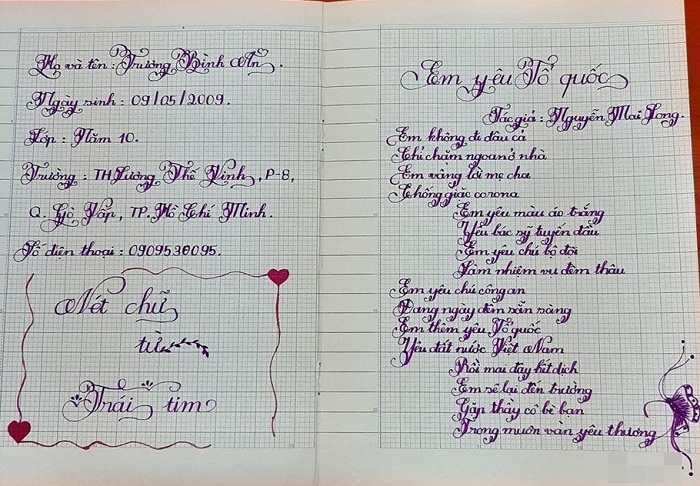 Họ và tên : Trương Bình An.
Ngày sinh : 09/05/2009.
Lớp : Năm 10.
Trường : TH Lương Thế Vinh, P-8,
Q. Gò Vấp, TP. Hồ Chí Minh.
Số điện thoại : 0909538095.
Nét chữ
từ
Trái tim
Em yêu Tổ quốc
Tác giả : Nguyễn Mai Long.
Em không đi đâu cả
Chỉ chăm ngoan ở nhà
Em vâng lời mẹ cha
Chống giặc corona
Em yêu màu áo trắng
Yêu bác sỹ tuyến đầu
Em yêu chú bộ đội
Làm nhiệm vụ đêm thâu
Em yêu chú công an
Đang ngày đêm sẵn sàng
Em thêm yêu Tổ quốc
Yêu đất nước Việt Nam
Rồi mai đây hết dịch
Em sẽ lại đến trường
Gặp thầy cô bè bạn
Trong muôn vàn yêu thương